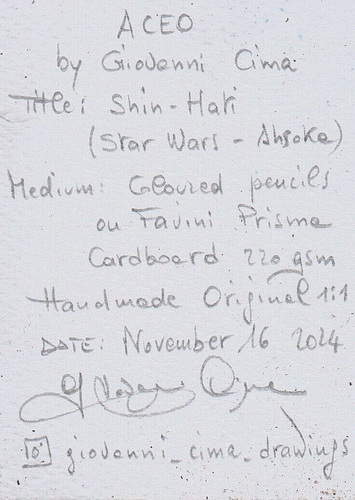 ACEO
by Giovanni Cima
Title: Shin-Hati
(Star Wars - Ahsoka)
Medium: Coloured pencils
on Favini Prisma
Cardboard 220 gsm
Handmade Original 1:1
DATE: November 16 2024
Giovanni Cima
giovanni_cima_drawings